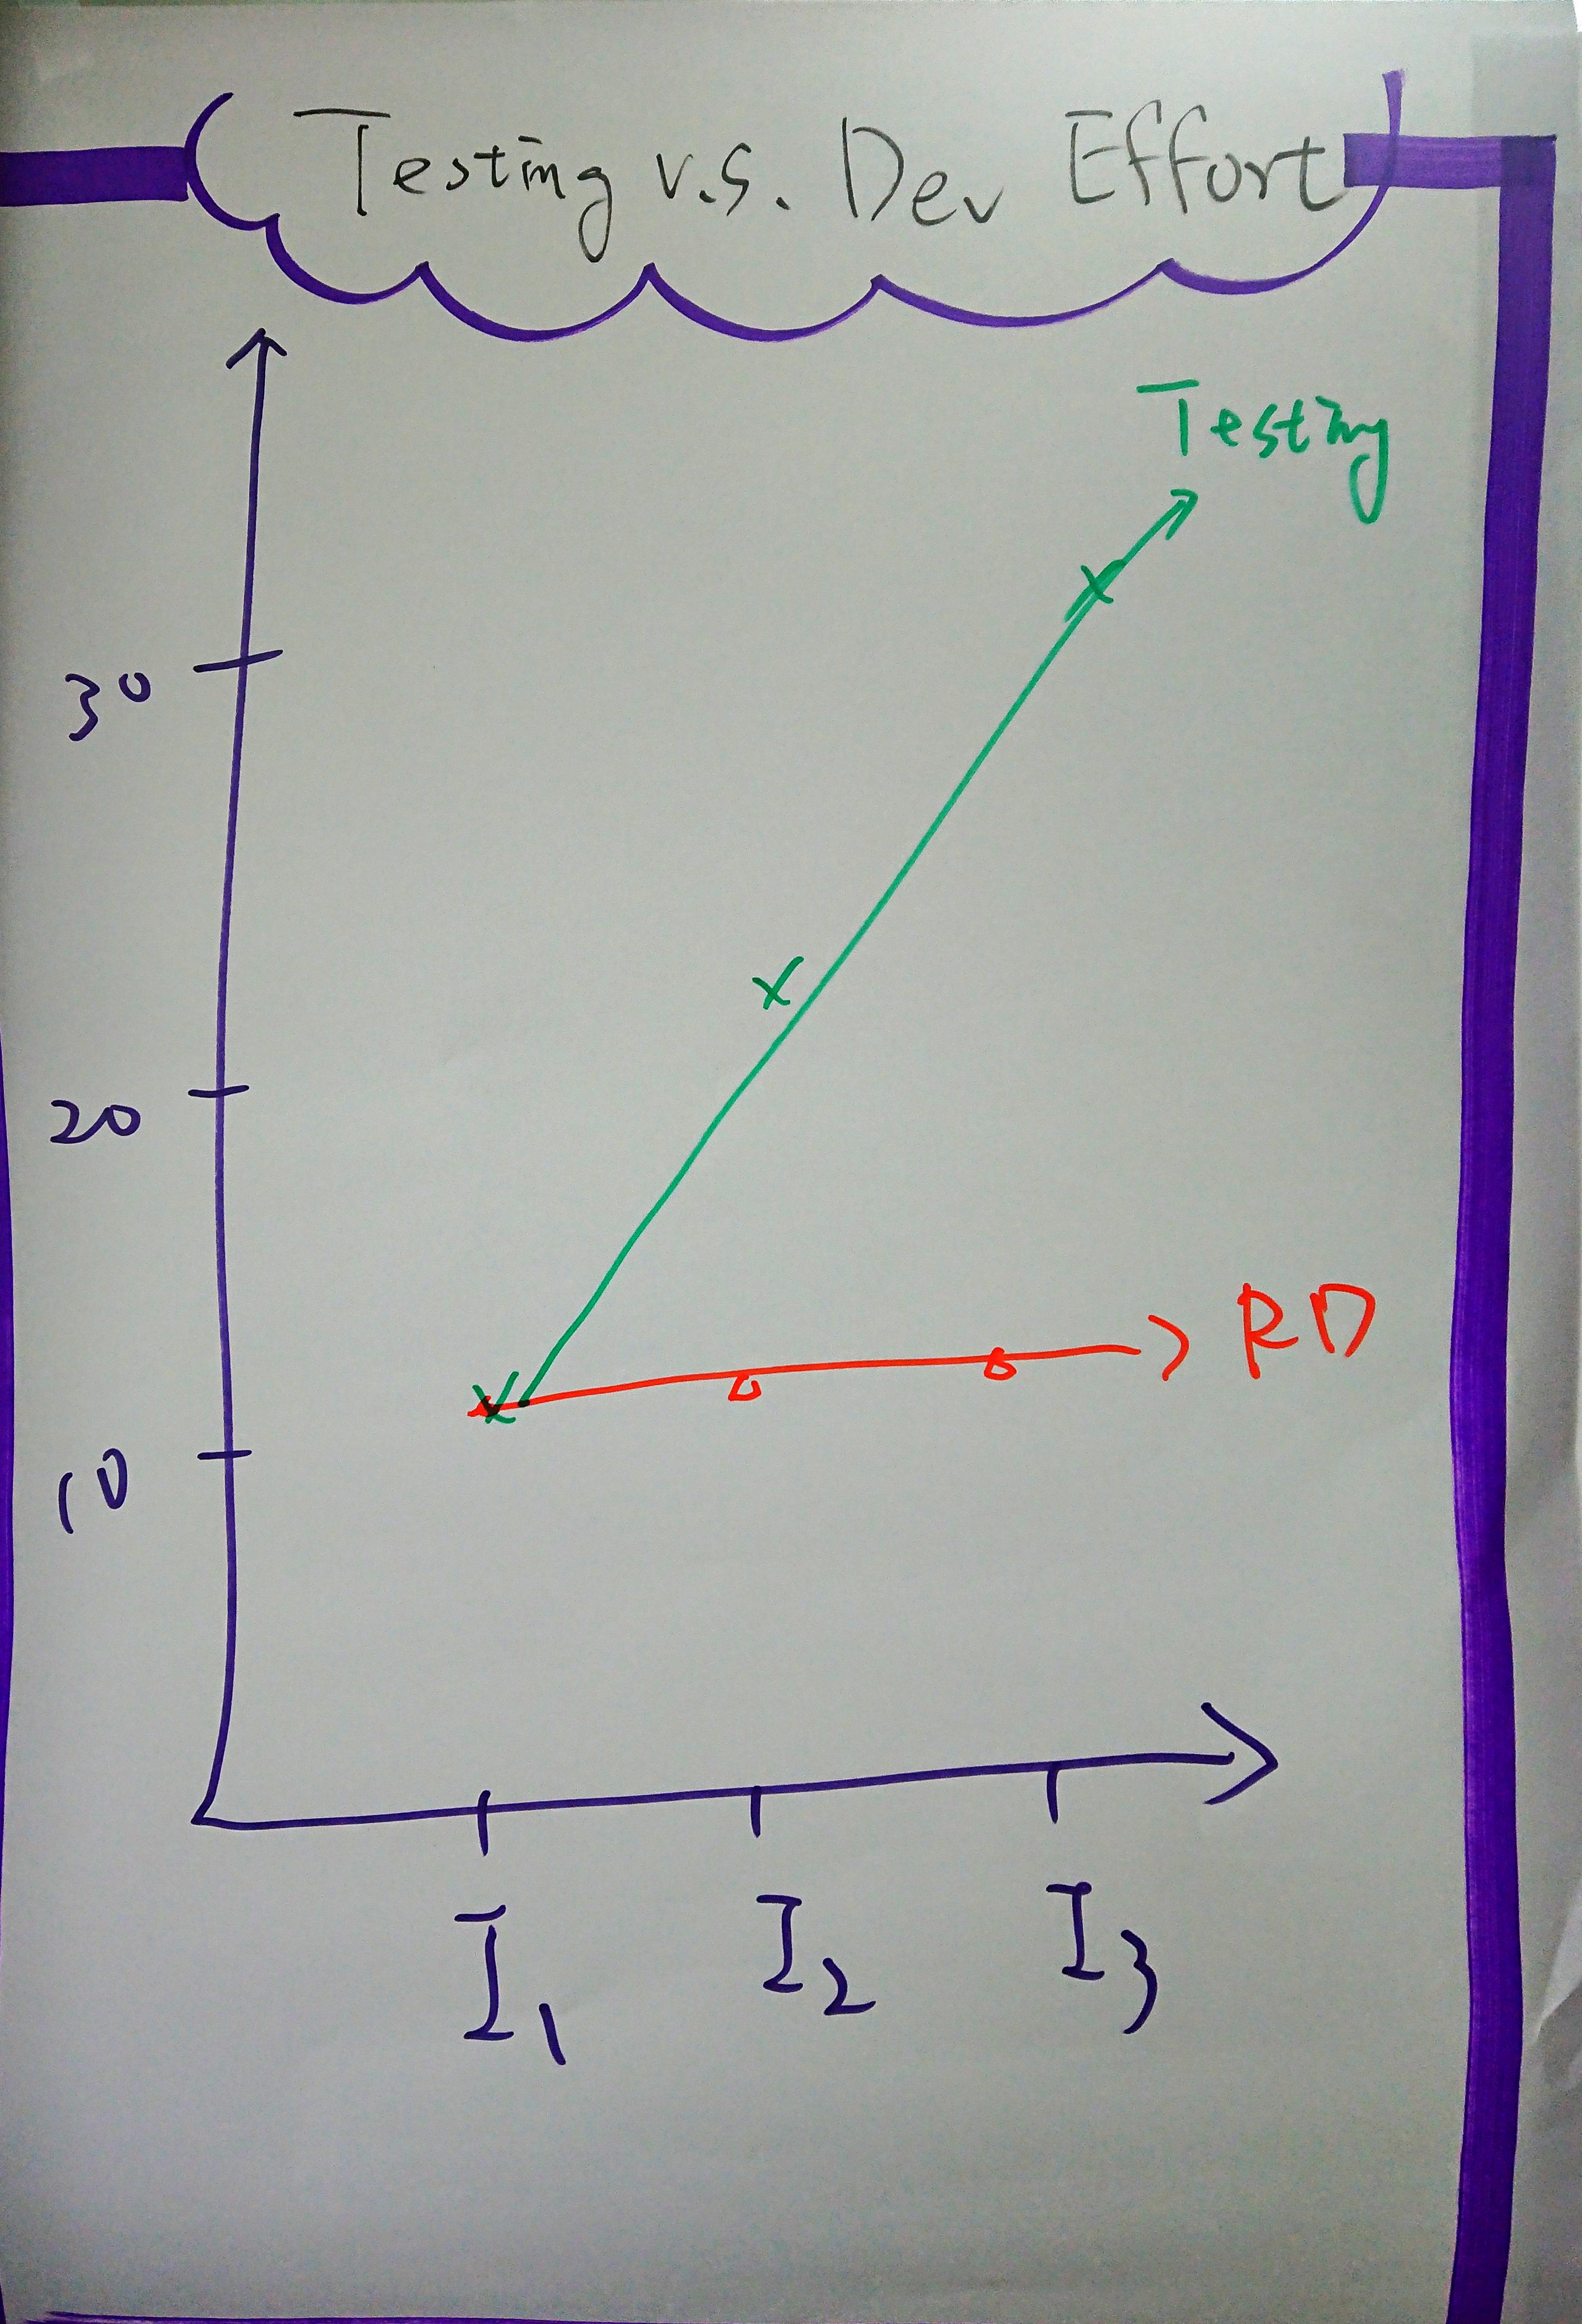 Testing v.s. Dev Effort
Testing
30
20
RD
10
I1
I2
I3